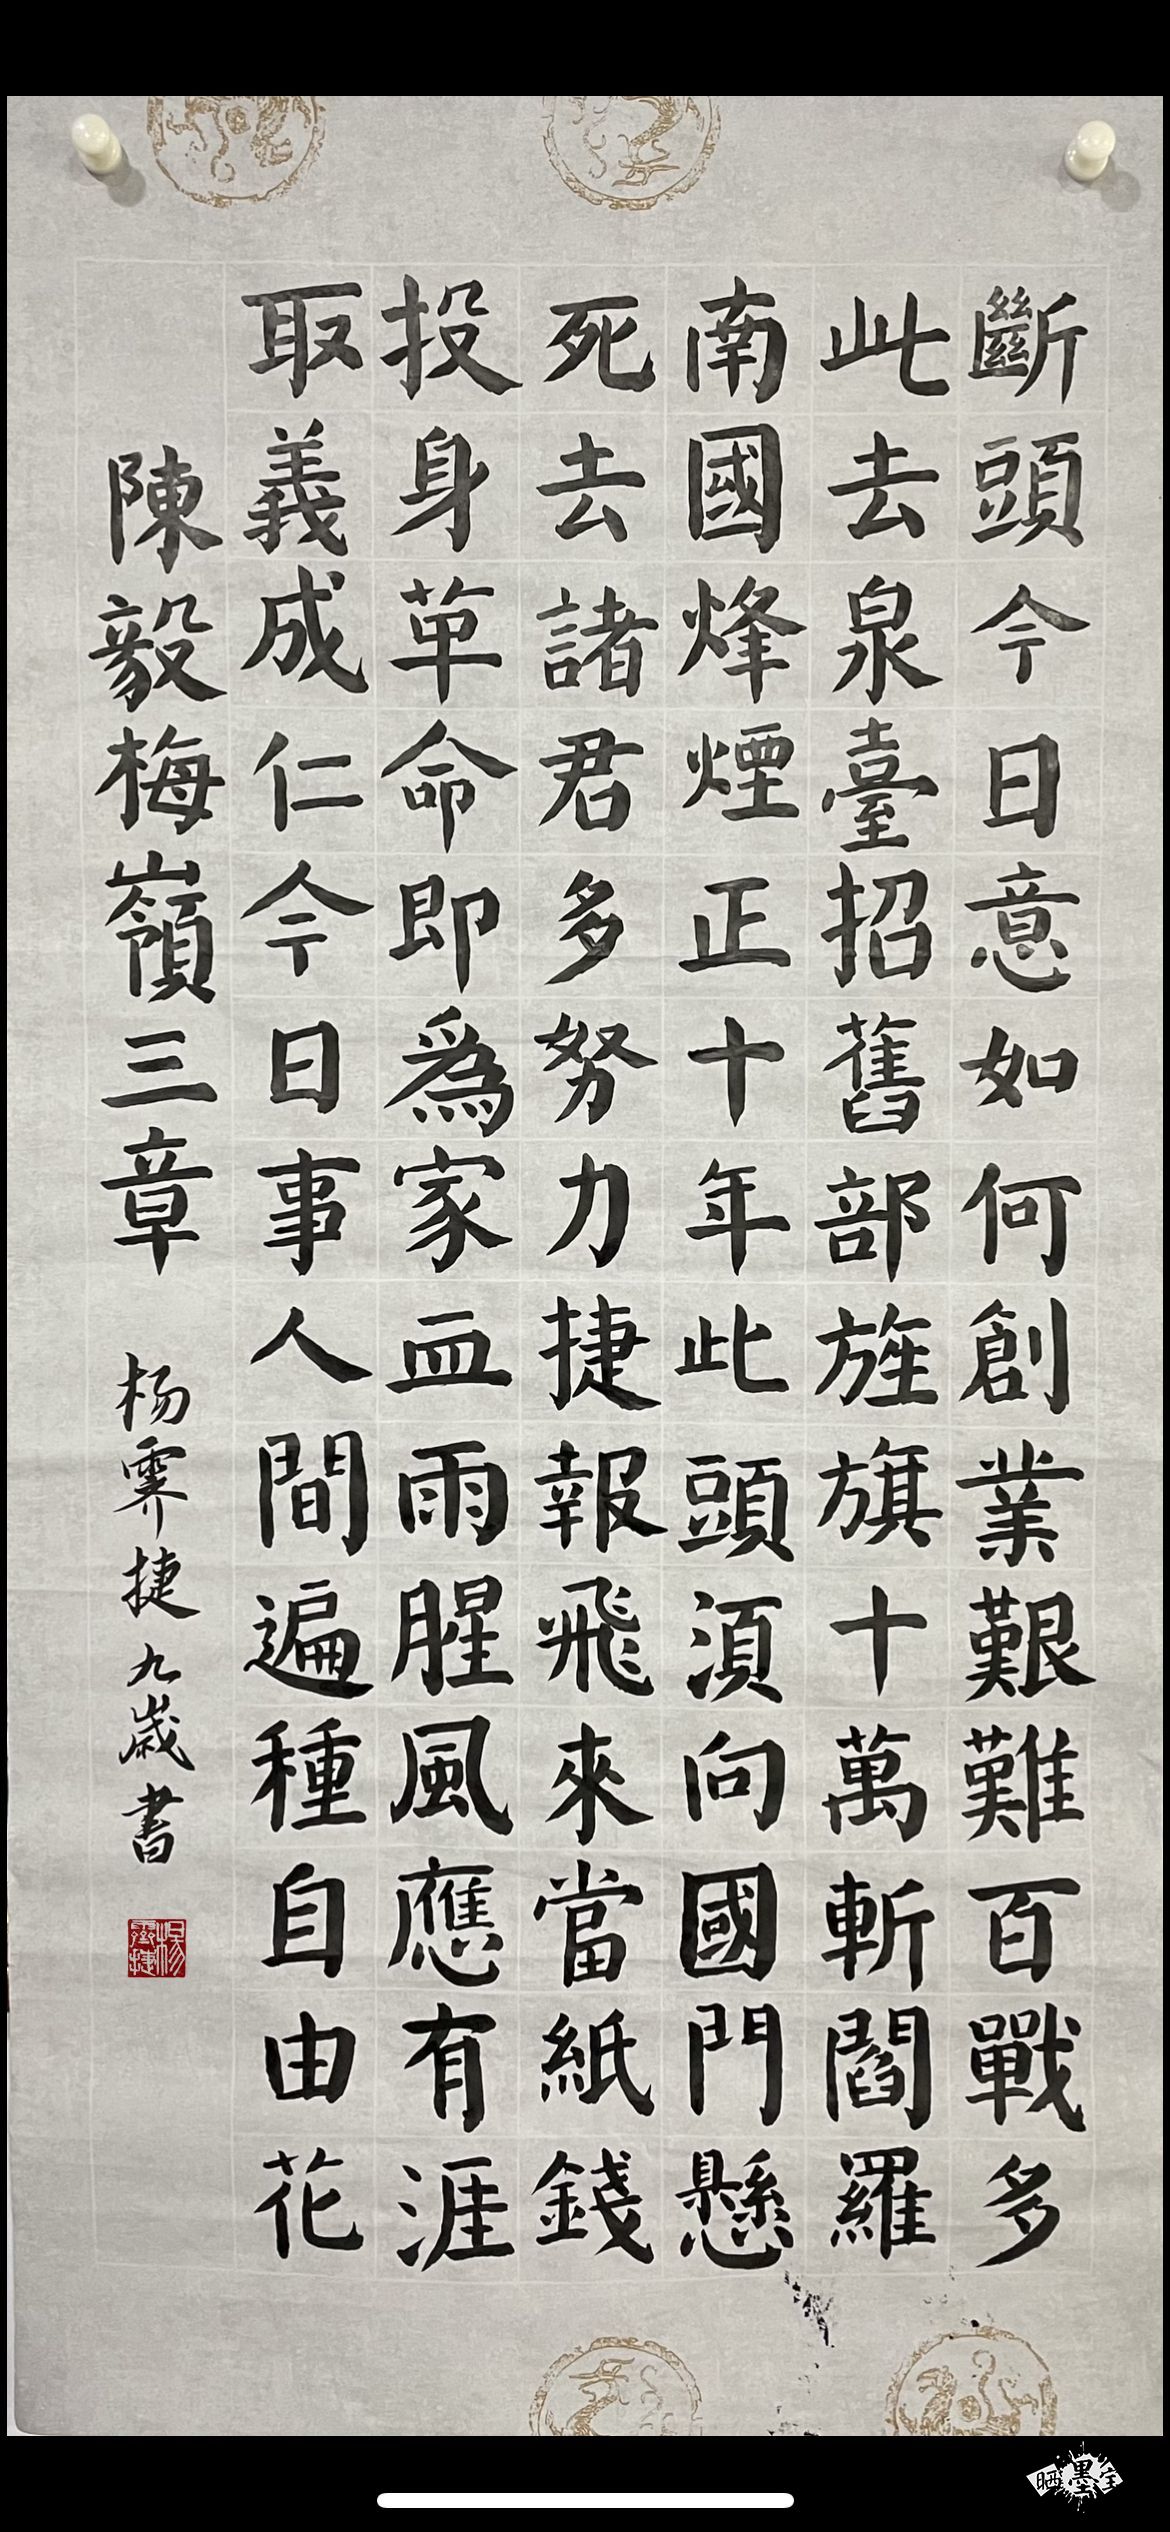 斷頭今日意如何創業艱難百戰多
此去泉臺招舊部旌旗十萬斬閻羅
南國烽煙正十年此頭須向國門懸
死去諸君多努力捷報飛來當紙錢
投身革命即爲家血雨腥風應有涯
取義成仁今日事人間遍種自由花
陳毅梅嶺三章
杨霁捷九歲書
楊霽捷
晒墨宝